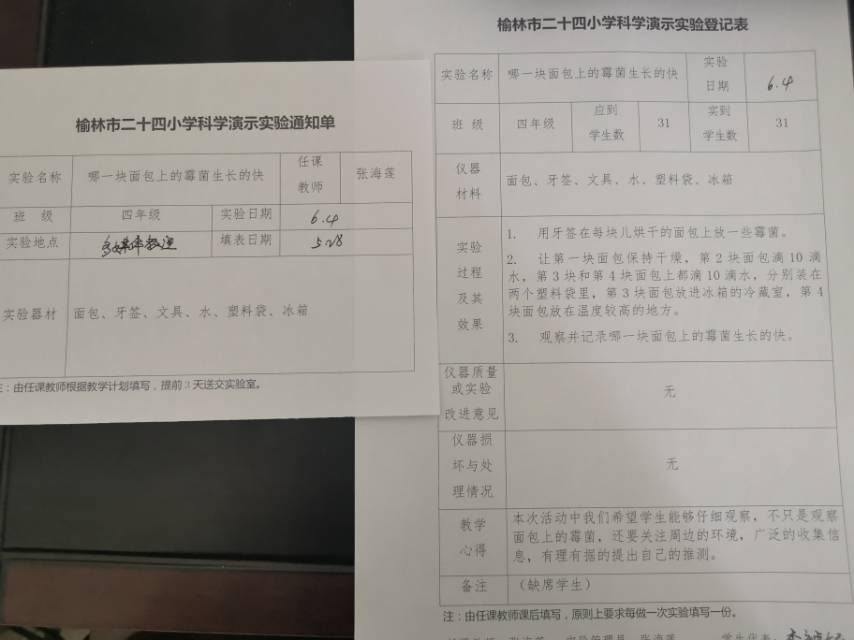 榆林市二十四小学科学演示实验通知单
实验名称 哪一块面包上的霉菌生长的快 任课教师 张海莲
班 级 四年级 实验日期 6.4
实验地点 填表日期 5.28
实验器材 面包、牙签、文具、水、塑料袋、冰箱
注：由任课教师根据教学计划填写，提前3天送交实验室。
榆林市二十四小学科学演示实验登记表
实验名称 哪一块面包上的霉菌生长的快 实验日期 6.4
班 级 四年级 应到学生数 31 实到学生数 31
仪器材料 面包、牙签、文具、水、塑料袋、冰箱
实验过程及其效果
1. 用牙签在每块儿烘干的面包上放一些霉菌。
2. 让第一块面包保持干燥，第2块面包滴10滴
水，第3块和第4块面包上都滴10滴水，分别装在
两个塑料袋里，第3块面包放进冰箱的冷藏室，第4
块面包放在温度较高的地方。
3. 观察并记录哪一块面包上的霉菌生长的快。
仪器质量或实验改进意见 无
仪器损坏与处理情况 无
教学心得
本次活动中我们希望学生能够仔细观察，不只是观察
面包上的霉菌，还要关注周边的环境，广泛的收集信
息，有理有据的提出自己的推测。
备注 （缺席学生）
注：由任课教师课后填写，原则上要求每做一次实验填写一份。
张海莲 实验管理员 张海莲 学生代表：